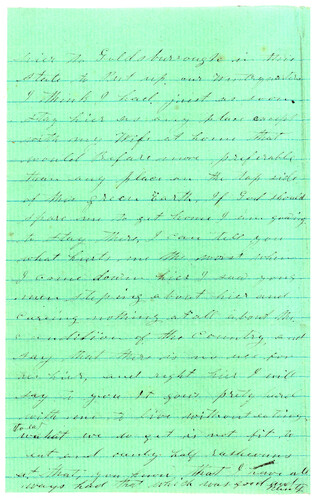 hier to Goldsburrough in this
State to Put up our Winterquarters
I think I had just as soon
Stay hier as any place except
with my Wife at home that
would Befare more preferable
than any place on the top side
of this green Earth. if God should
spare me to get home I am going
to stay There, I can tell you
what hurts me the most when
I come down hier I saw young
men stepping about hier and
caring nothing atall about the
condition of the Country and
say that there is no use for
me hier, and right hier I will
say to you it goes prety hard
with me to live without eating
what we do get is not fit to
eat and only half rashuns
at that, you know that I have all
ways had that which was good